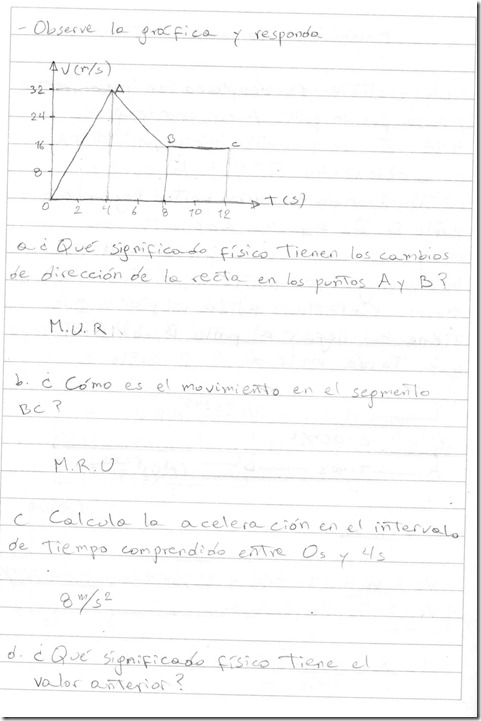 - Observe la gráfica y responda
V(m/s)
A
32
24
B
C
16
8
0 2 4 6 8 10 12
T(s)
a ¿Qué significado físico Tienen los cambios
de dirección de la recta en los puntos A y B?
M.U.R.
b. ¿Cómo es el movimiento en el segmento
BC?
M.R.U
c Calcula la aceleración en el intervalo
de Tiempo comprendido entre 0s y 4s
8 m/s²
d. ¿Qué significado físico Tiene el
valor anterior?